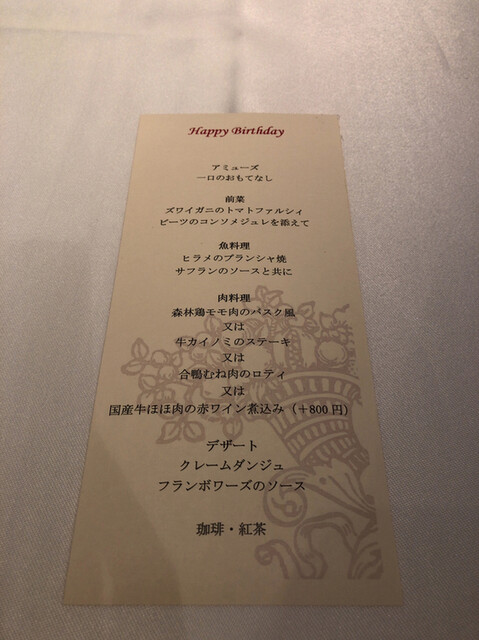 Happy Birthday
アミューズ
一口のおもてなし
前菜
ズワイガニのトマトファルシィ
ビーツのコンソメジュレを添えて
魚料理
ヒラメのプランシャ焼
サフランのソースと共に
肉料理
森林鶏モモ肉のバスク風
又は
牛カイノミのステーキ
又は
合鴨むね肉のロティ
又は
国産牛ほほ肉の赤ワイン煮込み（＋800円）
デザート
クレームダンジュ
フランボワーズのソース
珈琲・紅茶